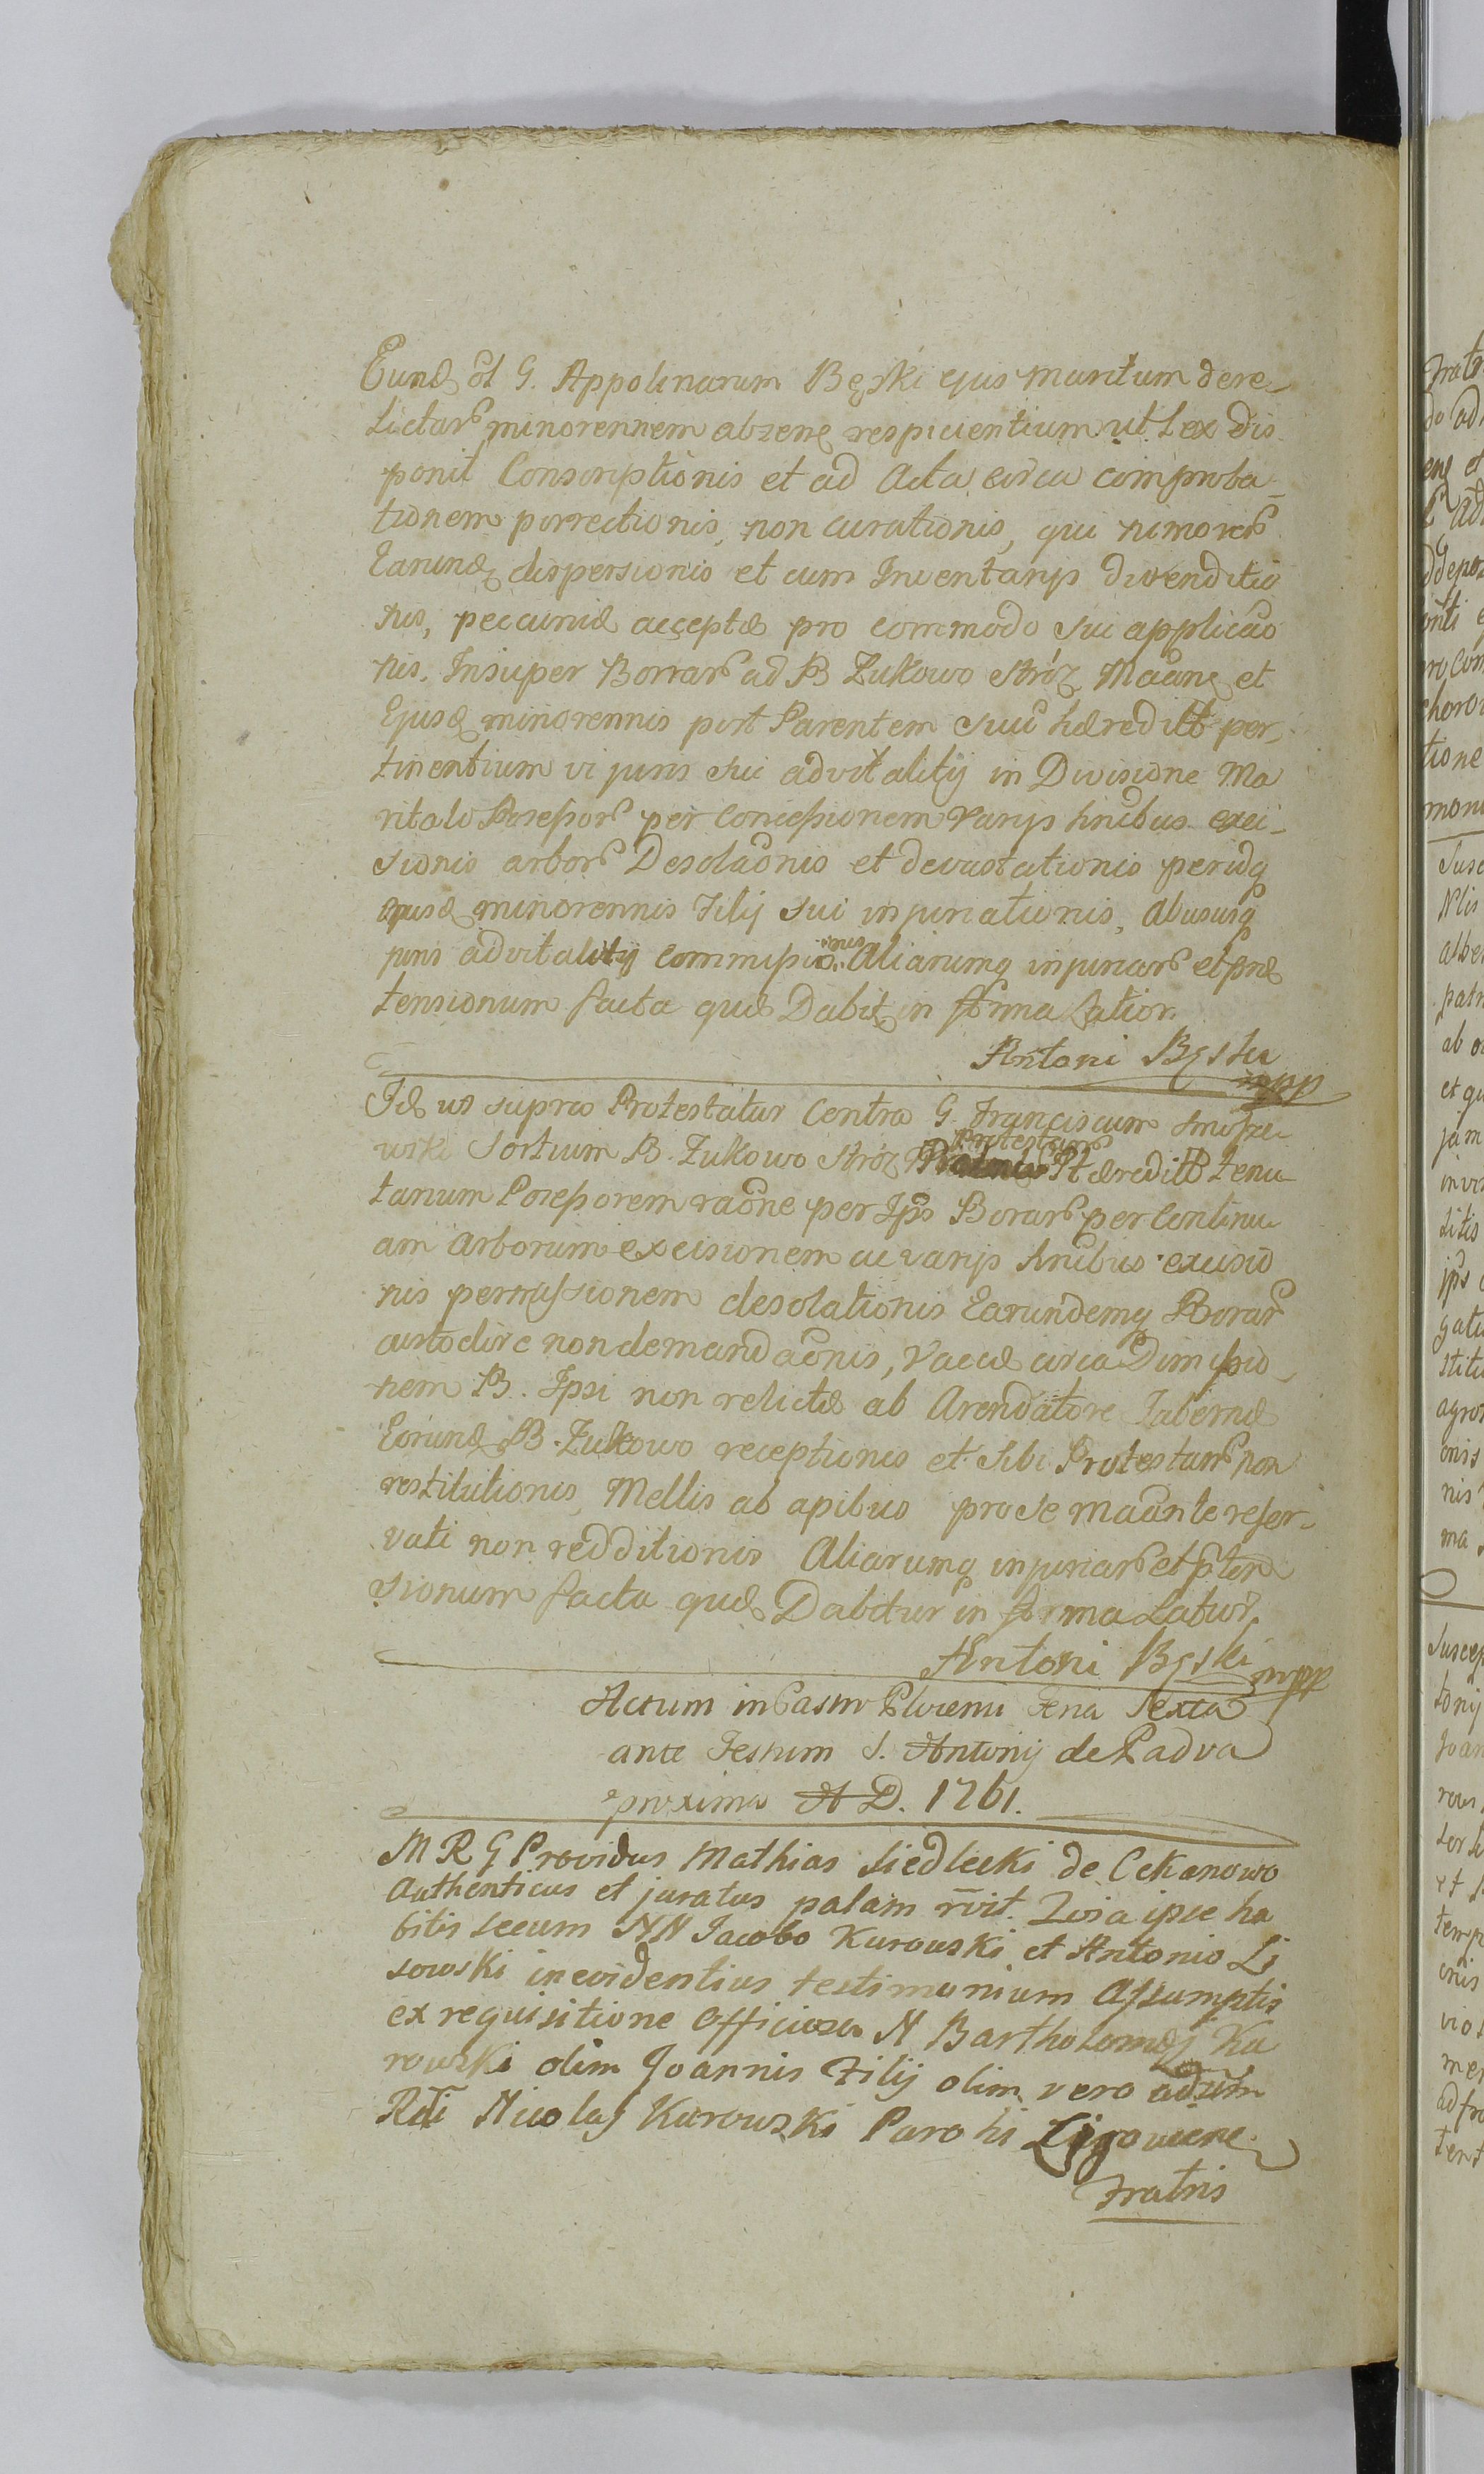 Eund ol G. Appolinarum Bęski ejus maritum dere-
lictar minorennem abzene respicientium ut Lex dis
ponit Conscriptionis et ad Acta circa comproba-
tionem porrectionis, non curationis, qui nimo vero
Earund dispersionis et cum Inventarijs divenditio
nis, peccuniæ acceptæ pro commodo sui applicao
nis. Insuper Borrar ad B Zukowo Stróż Maane et
Ejusd minorennis post Parentem suu hæreditt per-
tinentium vi juris sui advitalitij in Divisione Ma
ritali Possessor per concessionem varijs hnibus exci-
sionis arbor Desolaonis et devastationis peridq
ejusd minorennis Filij sui injuriationis, Abususq
juris advitalitij commissionis Aliarumq injuriar et præ
tensionum facta quæ Dabit in forma Latior.
Antoni Bęski
mpp
Id ut supra Protestatur Contra G. Franciscum
wski Sortium B. Zukowo Stróż protestantis Hæreditt tenu
tarium Possessorem raone per Ips Borar per continu
am arborum excisionem ac varijs hnibus excisio
nis permissionem desolationis Earundemq Borar
custodire non demandaonis, Vaccæ circa Dimissio-
nem B. Ipsi non relictæ ab Arendatore Tabernæ
Eorund B. Zukowo receptionis et sibi Protestanti non
restitutionis, Mellis ab apibus pro se maante reser-
vati non redditionis Aliarumq injuriar et pten
sionum facta quæ Dabitur in forma Latior.
Antoni Bęski mpp
Actum in Castro Plocensi Feria Sexta
ante Festum S. Antonij de Padva
proxima A D. 1761.
M R G Providus Mathias Siedlecki de Cekanowo
Authenticus et juratus palam rvit. Quia ipse ha
bitis secum NN Jacobo Kurowski et Antonio Li
sowski in evidentius testimonium Assumptis
ex requisitione officiosa N Bartholomej Ku
rowski olim Joannis Filij olim vero adm
Rdi Nicolaj Kurowski Parohi Ligowiene
Fratris